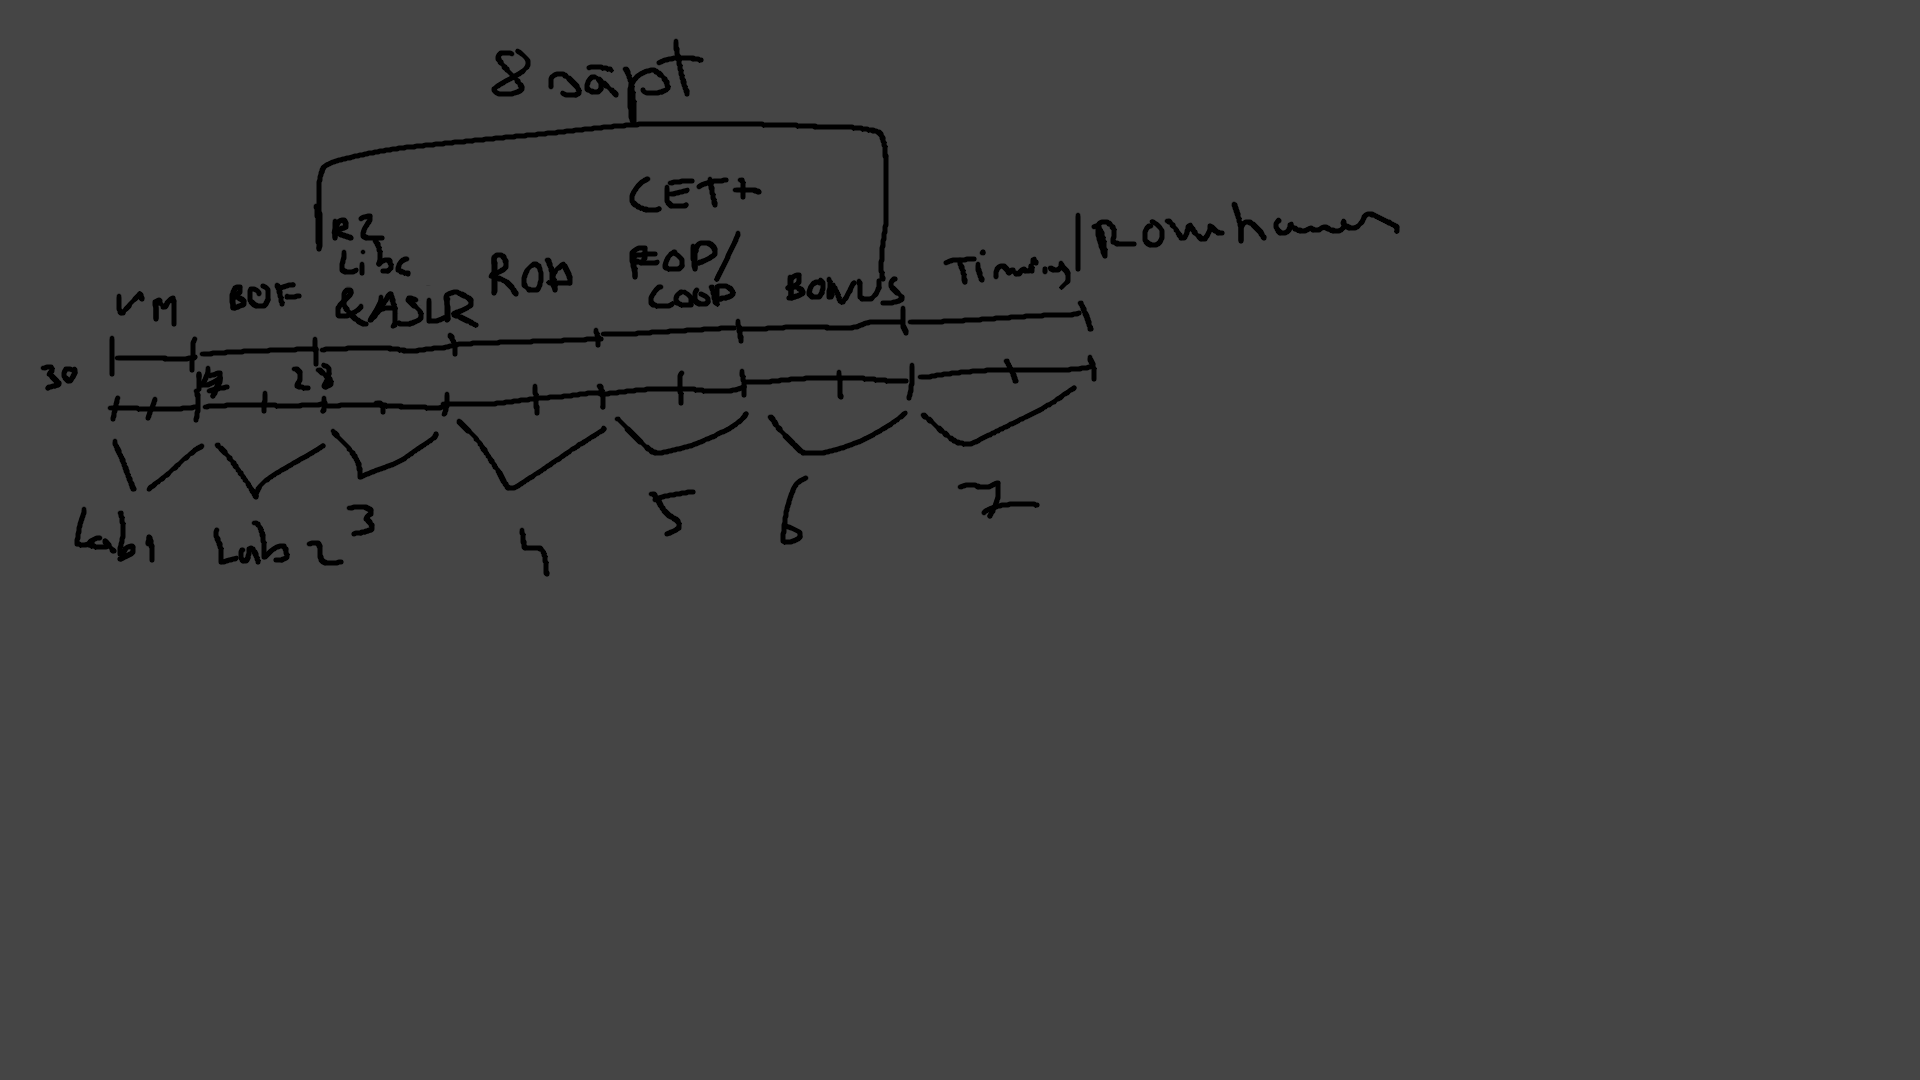 8 săpt
CET+
R2
Libc
& ASLR
VM
BOF
ROP
FOP/
COOP
BONUS
Timing
Rowhammer
30
28
Lab1
Lab 2
3
4
5
6
7